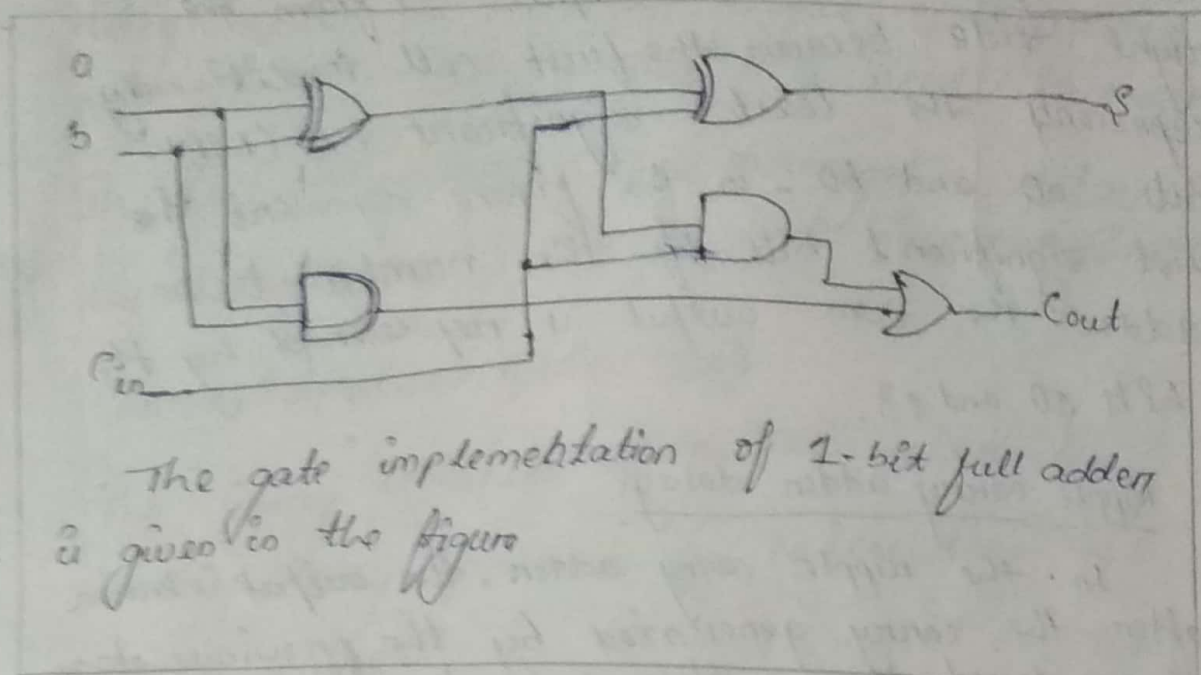 a
S
b
Cout
Cin
The gate implementation of 1-bit full adder
is given in the figure